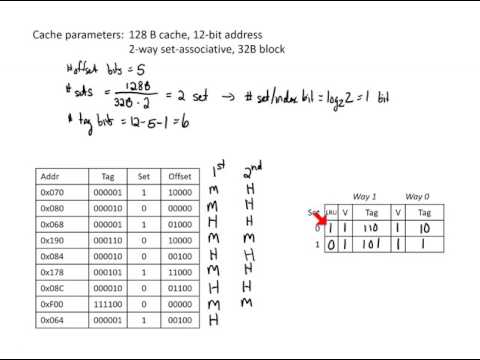 Cache parameters: 128 B cache, 12-bit address
2-way set-associative, 32B block
# offset bits = 5
# sets = 128B / 32B · 2 = 2 set → # set/index bit = log₂2 = 1 bit
# tag bits = 12-5-1 = 6
1st 2nd
Addr Tag Set Offset
0x070 000001 1 10000 M H
0x080 000010 0 00000 M H
0x068 000001 1 01000 H H
0x190 000110 0 10000 M M
0x084 000010 0 00100 H H
0x178 000101 1 11000 M H
0x08C 000010 0 01100 H H
0xF00 111100 0 00000 M M
0x064 000001 1 00100 H
Way 1 Way 0
Set LRU V Tag V Tag
0 1 1 110 1 10
1 0 1 101 1 1